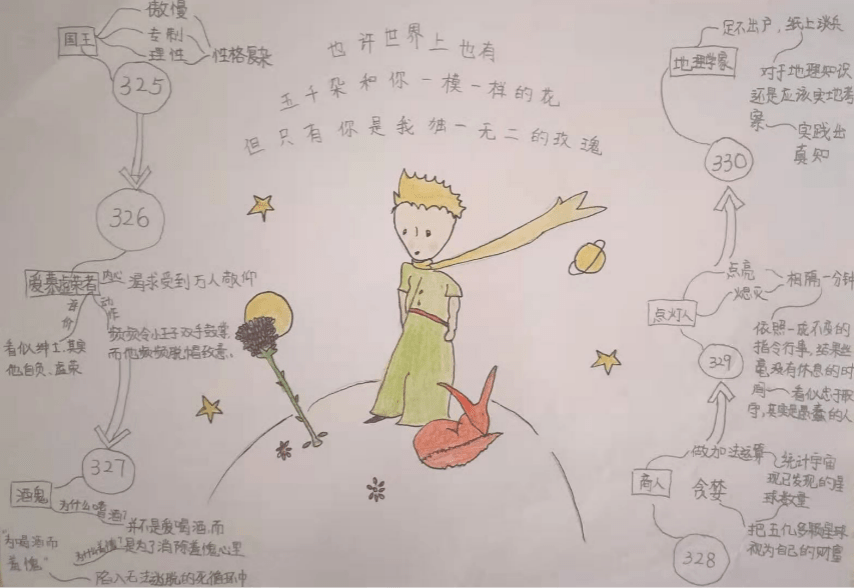 也许世界上也有
五千朵和你一模一样的花
但只有你是我独一无二的玫瑰
国王
傲慢
专制
理性
性格复杂
325
326
爱慕虚荣者
内心
渴求受到万人敬仰
评价
看似绅士,其实
他自负、虚荣
动作
频频令小王子双手鼓掌
而他频频脱帽致意、
327
酒鬼
为什么喝酒?
并不是爱喝酒,而
是为了消除羞愧心里
为什么羞愧?
"为喝酒而
羞愧"
陷入无法逃脱的死循环中
地理学家
足不出户,纸上谈兵
对于地理知识
还是应该实地考
察
实践出
真知
330
点灯人
点亮
熄灭
相隔一分钟
依照一成不变的
指令行事,结果丝
毫没有休息的时
间
看似忠于职
守,其实是愚蠢的人
329
商人
做加法运算
统计宇宙
现已发现的星
球数量
贪婪
把五亿多颗星球
视为自己的财富
328